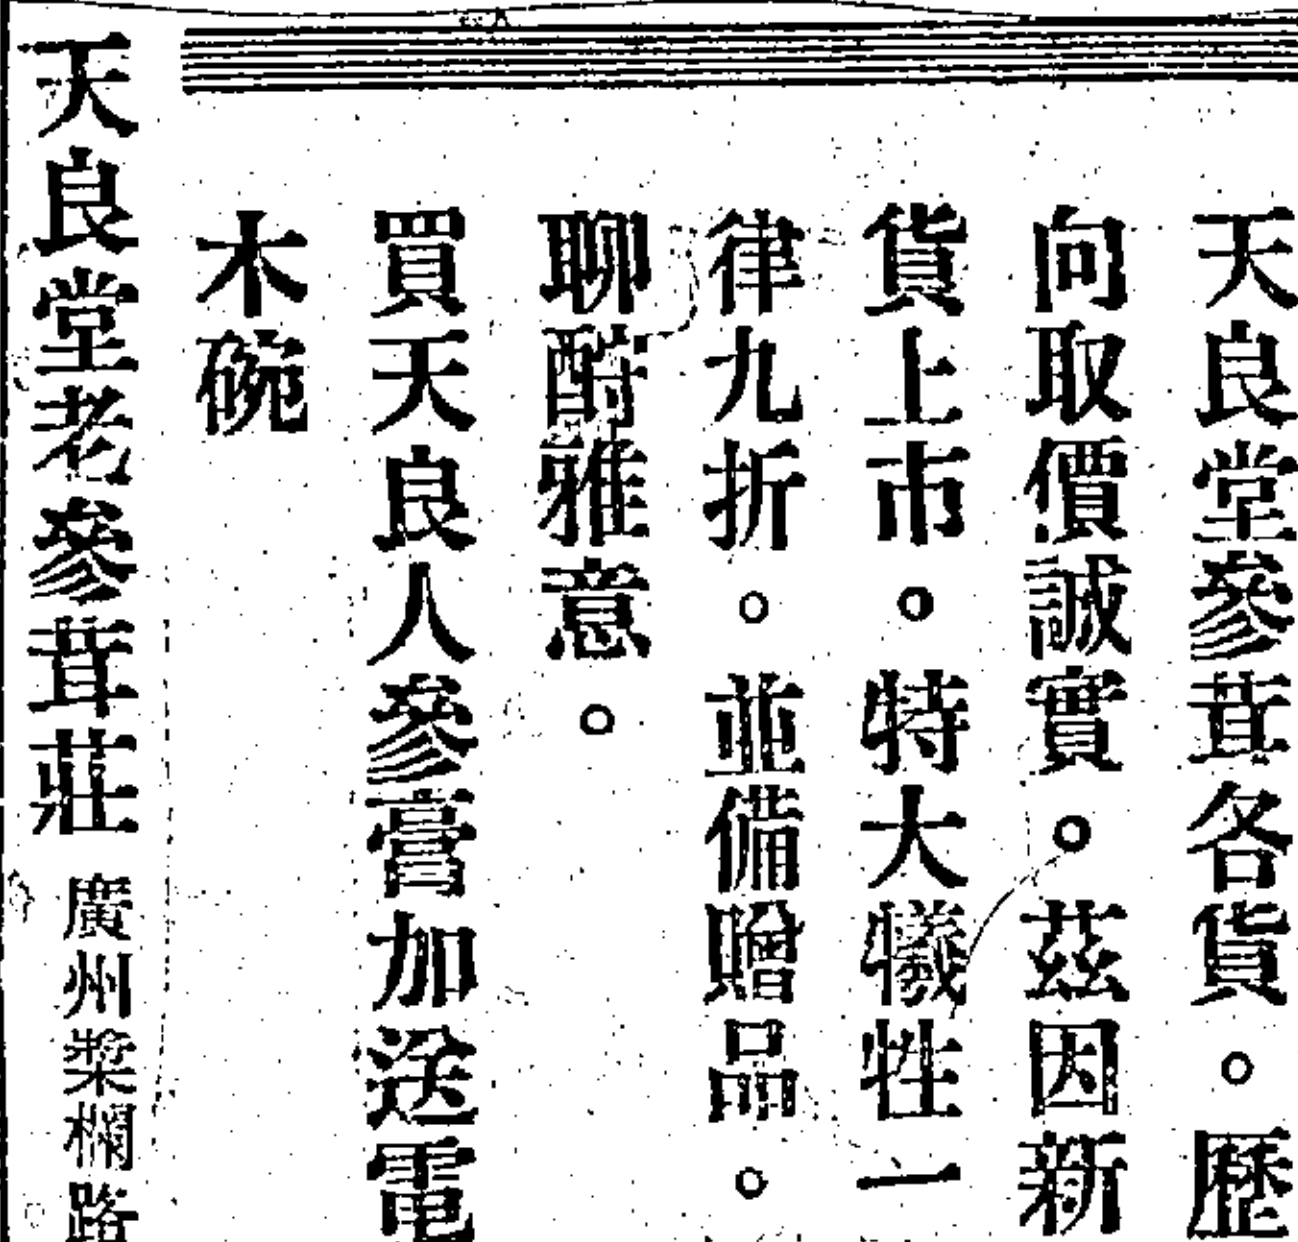 天良堂參茸各貨。歷
向取價誠實。茲因新
貨上市。特大犧牲一
律九折。並備贈品。
聊酧雅意。
買天良人參膏加送電
木碗
天良堂老參茸莊 廣州槳欄路